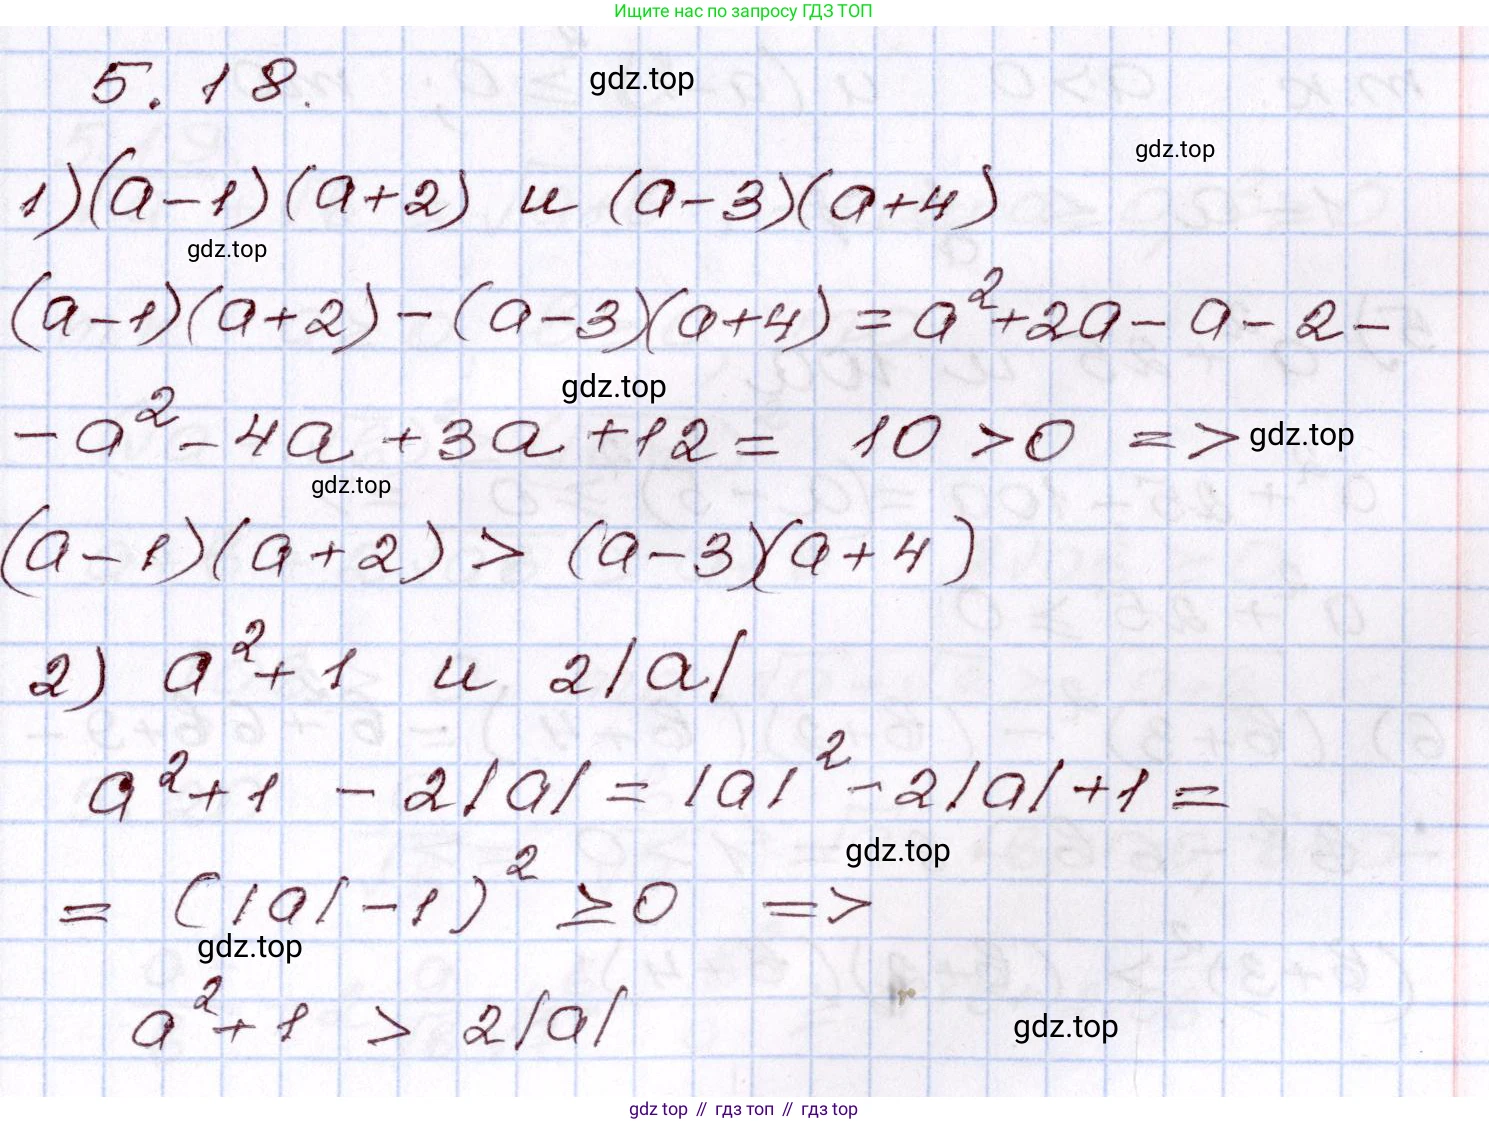 Ищите нас по запросу ГДЗ ТОП
5.18.
gdz.top
gdz.top
1) (a-1)(a+2) и (a-3)(a+4)
gdz.top
(a-1)(a+2) - (a-3)(a+4) = a²+2a-a-2-
gdz.top
-a²-4a+3a+12= 10 >0 =>
gdz.top
gdz.top
(a-1)(a+2) > (a-3)(a+4)
2) a²+1 и 2|a|
a²+1 - 2|a| = |a|²-2|a|+1 =
gdz.top
= (|a|-1)² ≥0 =>
gdz.top
a²+1 > 2|a|
gdz.top
gdz top // гдз топ // gdz top